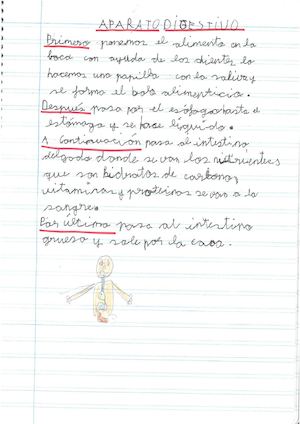 APARATO DIGESTIVO
Primero ponemos el alimento en la
boca con ayuda de los dientes lo
hacemos una papilla con la saliva y
se forma el bolo alimenticio.
Después pasa por el esófago hasta el
estómago y se hace líquido.
A continuación pasa al intestino
delgado donde se van los nutrientes
que son hidratos de carbono,
vitaminas y proteinas se van a la
sangre.
Por último pasa al intestino
grueso y sale por la caca.